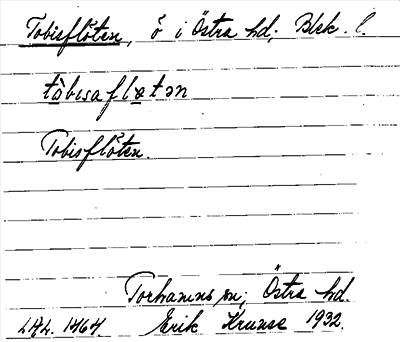 Tobisflöten, ö i Östra hd; Blek. l.
tòbɩsaflətən
Tobisflöten.
Torhamns sn; Östra hd.
LAL. 1464 Erik Krunse 1932.